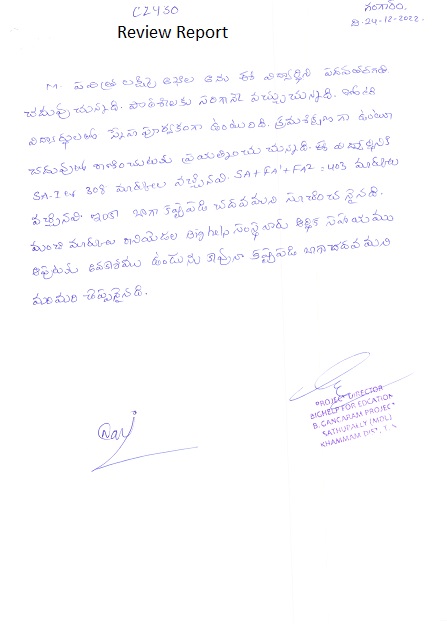 C2450
గంగారం.
ది. 24-12-2022.
Review Report
M. పవిత్ర లక్ష్మి శ్రీ అఖిల అను ఈ విద్యార్థిని పదవతరగతి
చదువుచున్నది. పాఠశాలకు సరిగానే వచ్చుచున్నది. తోటి
విద్యార్థులతో స్నేహ పూర్వకంగా ఉంటుంది. క్రమశిక్షణ గా ఉంటూ
చదువులో రాణించుటకు ప్రయత్నించు చున్నది. ఈ విద్యార్థినికి
SA-I లో 308 మార్కులు వచ్చినవి. SA + FA1 + FA2 = 403 మార్కులు
వచ్చినవి. ఇంకా బాగా కష్టపడి చదవమని సూచించ నైనది.
మంచి మార్కులు రానియెడల Big help సంస్థ వారు ఆర్థిక సహాయము
ఆపుటకు అవకాశము ఉండును కావున కష్టపడి బాగా చదవ మని
మరిమరి చెప్పనైనది.
PROJECT DIRECTOR
BIGHELP FOR EDCATION
B. GANGARAM PROJECT
SATHUPALLY (MDL)
KHAMMAM DIST, T.S